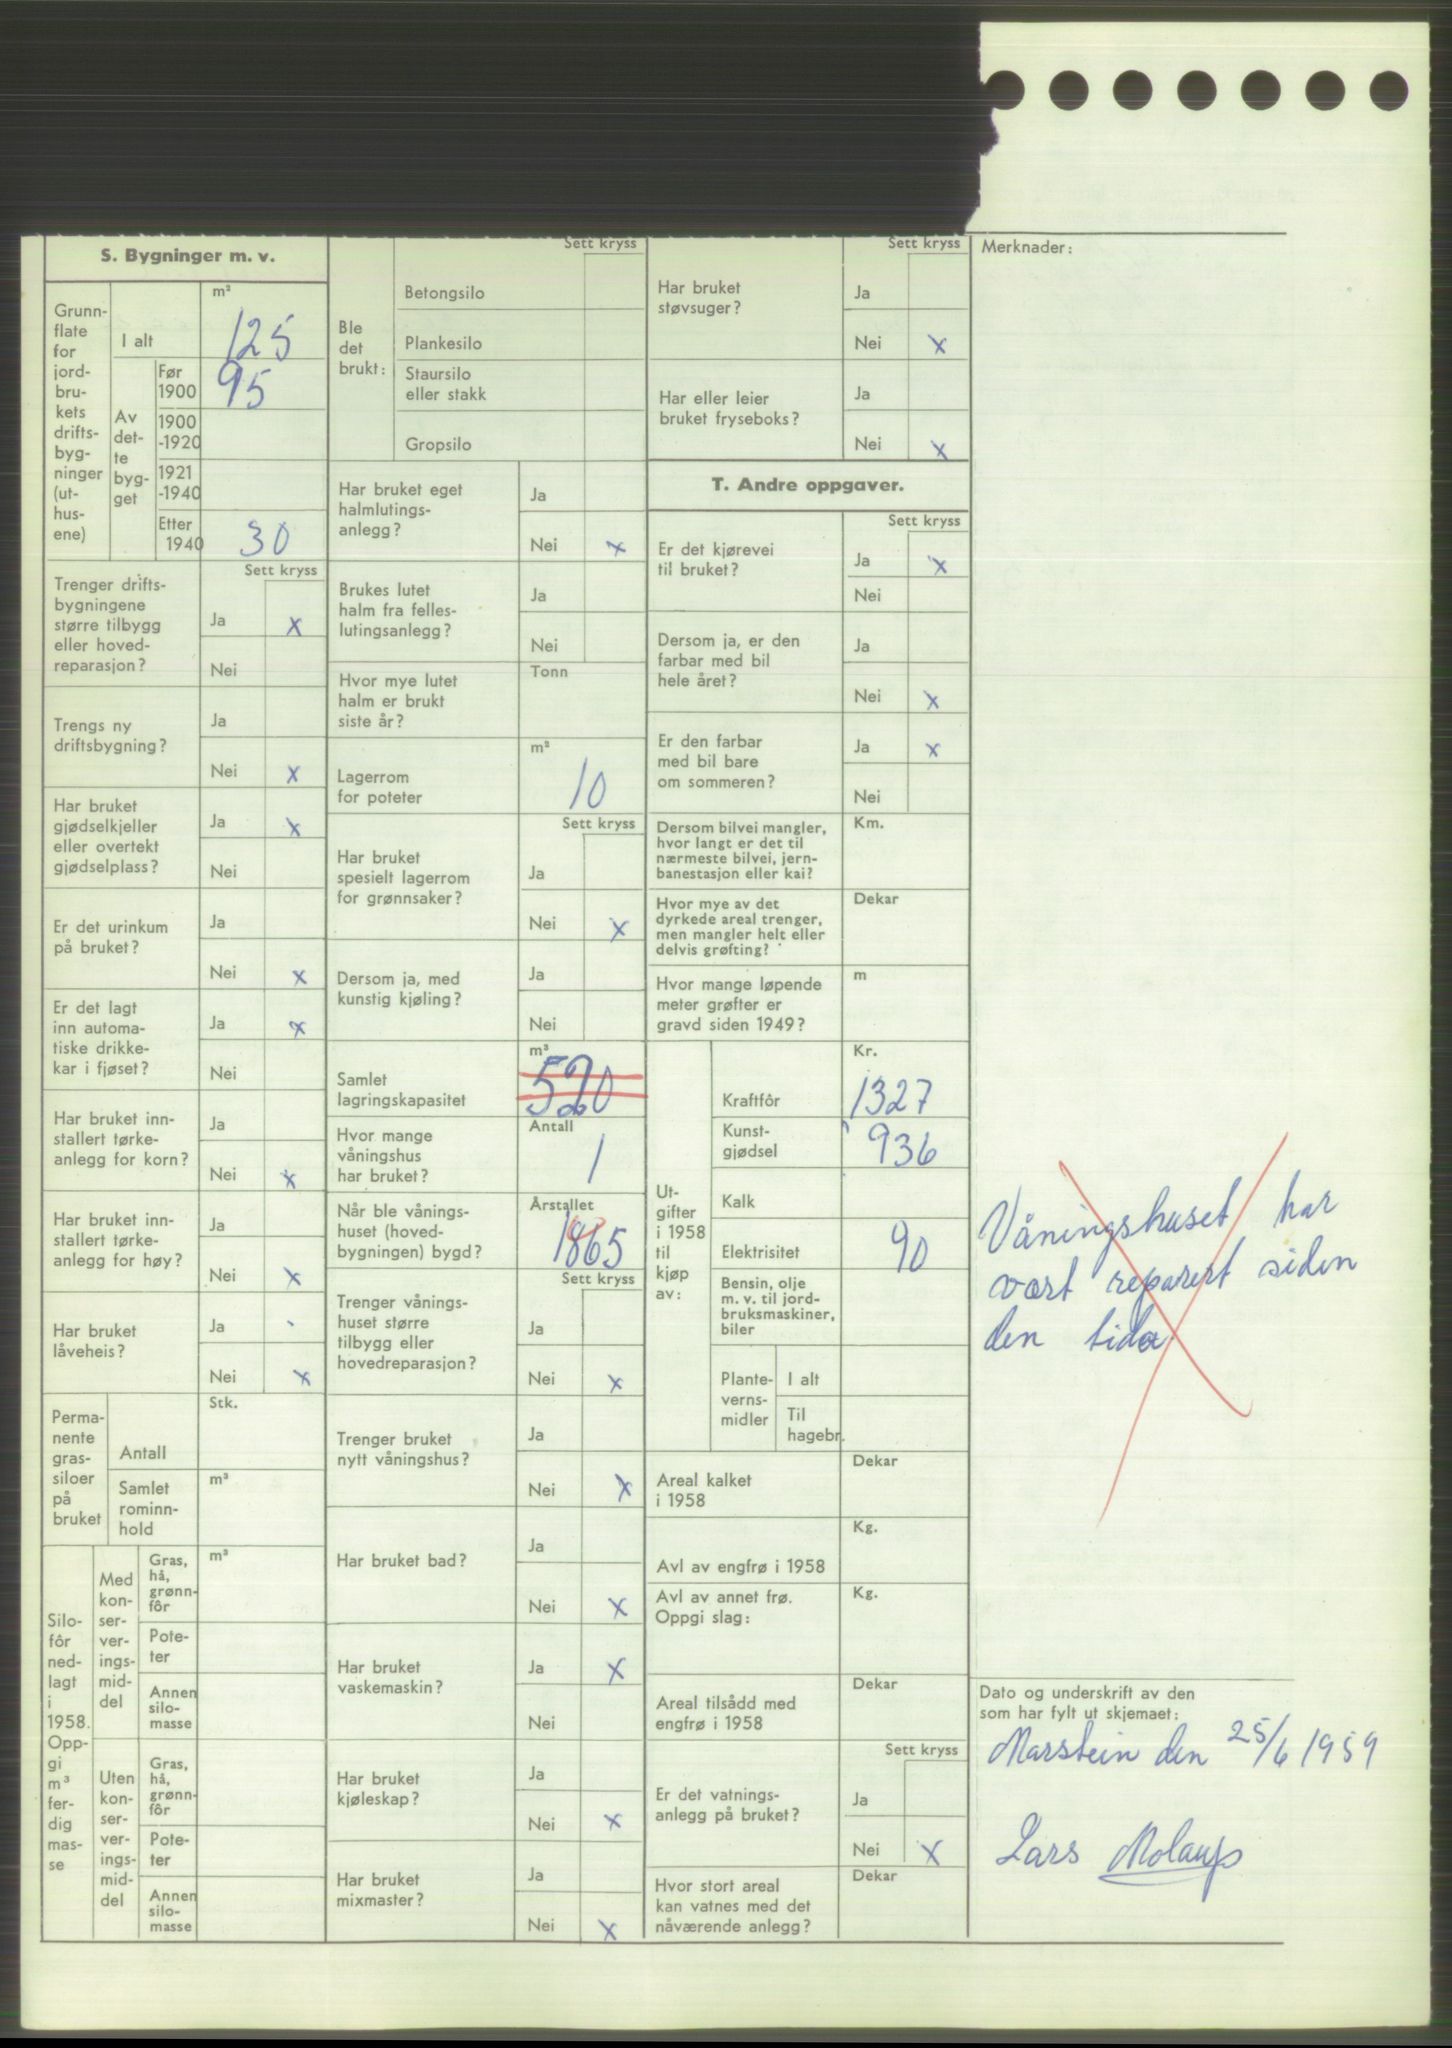 S. Bygninger m. v.
Grunn-
flate
for
jord-
bru-
kets
drifts-
byg-
ninger
(ut-
hus-
ene)
I alt
m²
125
Av
det-
te
byg-
get
Før
1900
95
1900
-1920
1921
-1940
Etter
1940
30
Sett kryss
Trenger drifts-
bygningene
større tilbygg
eller hoved-
reparasjon?
Ja x
Nei
Trengs ny
driftsbygning?
Ja
Nei x
Har bruket
gjødselkjeller
eller overtekt
gjødselplass?
Ja x
Nei
Er det urinkum
på bruket?
Ja
Nei x
Er det lagt
inn automa-
tiske drikke-
kar i fjøset?
Ja x
Nei
Har bruket inn-
stallert tørke-
anlegg for korn?
Ja
Nei x
Har bruket inn-
stallert tørke-
anlegg for høy?
Ja
Nei x
Har bruket
låveheis?
Ja
Nei x
Perma-
nente
gras-
siloer
på
bruket
Antall
Stk.
Samlet
rominn-
hold
m³
Silo-
fôr
ned-
lagt
i
1958.
Opp-
gi
m³
fer-
dig
mas-
se
Med
kon-
ser-
ver-
ings-
mid-
del
Gras,
hå,
grønn-
fôr
m³
Pote-
ter
Annen
silo-
masse
Uten
kon-
ser-
ver-
ings-
mid-
del
Gras,
hå,
grønn-
fôr
Pote-
ter
Annen
silo-
masse
Sett kryss
Ble
det
brukt:
Betongsilo
Plankesilo
Staursilo
eller stakk
Gropsilo
Har bruket eget
halmlutings-
anlegg?
Ja
Nei x
Brukes lutet
halm fra felles-
lutingsanlegg?
Ja
Nei
Hvor mye lutet
halm er brukt
siste år?
Tonn
Lagerrom
for poteter
m³
10
Sett kryss
Har bruket
spesielt lagerrom
for grønnsaker?
Ja
Nei x
Dersom ja, med
kunstig kjøling?
Ja
Nei
Samlet
lagringskapasitet
m³
520
Hvor mange
våningshus
har bruket?
Antall
1
Når ble vånings-
huset (hoved-
bygningen) bygd?
Årstallet
1865
Sett kryss
Trenger vånings-
huset større
tilbygg eller
hovedreparasjon?
Ja
Nei x
Trenger bruket
nytt våningshus?
Ja
Nei x
Har bruket bad?
Ja
Nei x
Har bruket
vaskemaskin?
Ja x
Nei
Har bruket
kjøleskap?
Ja
Nei x
Har bruket
mixmaster?
Ja
Nei x
Sett kryss
Har bruket
støvsuger?
Ja
Nei x
Har eller leier
bruket fryseboks?
Ja
Nei x
T. Andre oppgaver.
Sett kryss
Er det kjørevei
til bruket?
Ja x
Nei
Dersom ja, er den
farbar med bil
hele året?
Ja
Nei x
Er den farbar
med bil bare
om sommeren?
Ja x
Nei
Dersom bilvei mangler,
hvor langt er det til
nærmeste bilvei, jern-
banestasjon eller kai?
Km.
Hvor mye av det
dyrkede areal trenger,
men mangler helt eller
delvis grøfting?
Dekar
Hvor mange løpende
meter grøfter er
gravd siden 1949?
m
Ut-
gifter
i 1958
til
kjøp
av:
Kr.
Kraftfôr
1327
Kunst-
gjødsel
936
Kalk
Elektrisitet
90
Bensin, olje
m. v. til jord-
bruksmaskiner,
biler
Plante-
verns-
midler
I alt
Til
hagebr.
Areal kalket
i 1958
Dekar
Avl av engfrø i 1958
Kg.
Avl av annet frø.
Oppgi slag:
Kg.
Areal tilsådd med
engfrø i 1958
Dekar
Sett kryss
Er det vatnings-
anlegg på bruket?
Ja
Nei x
Hvor stort areal
kan vatnes med det
nåværende anlegg?
Dekar
Merknader:
Våningshuset har
vært reparert siden
den tida
Dato og underskrift av den
som har fylt ut skjemaet:
Marstein den 25/6 1959
Lars